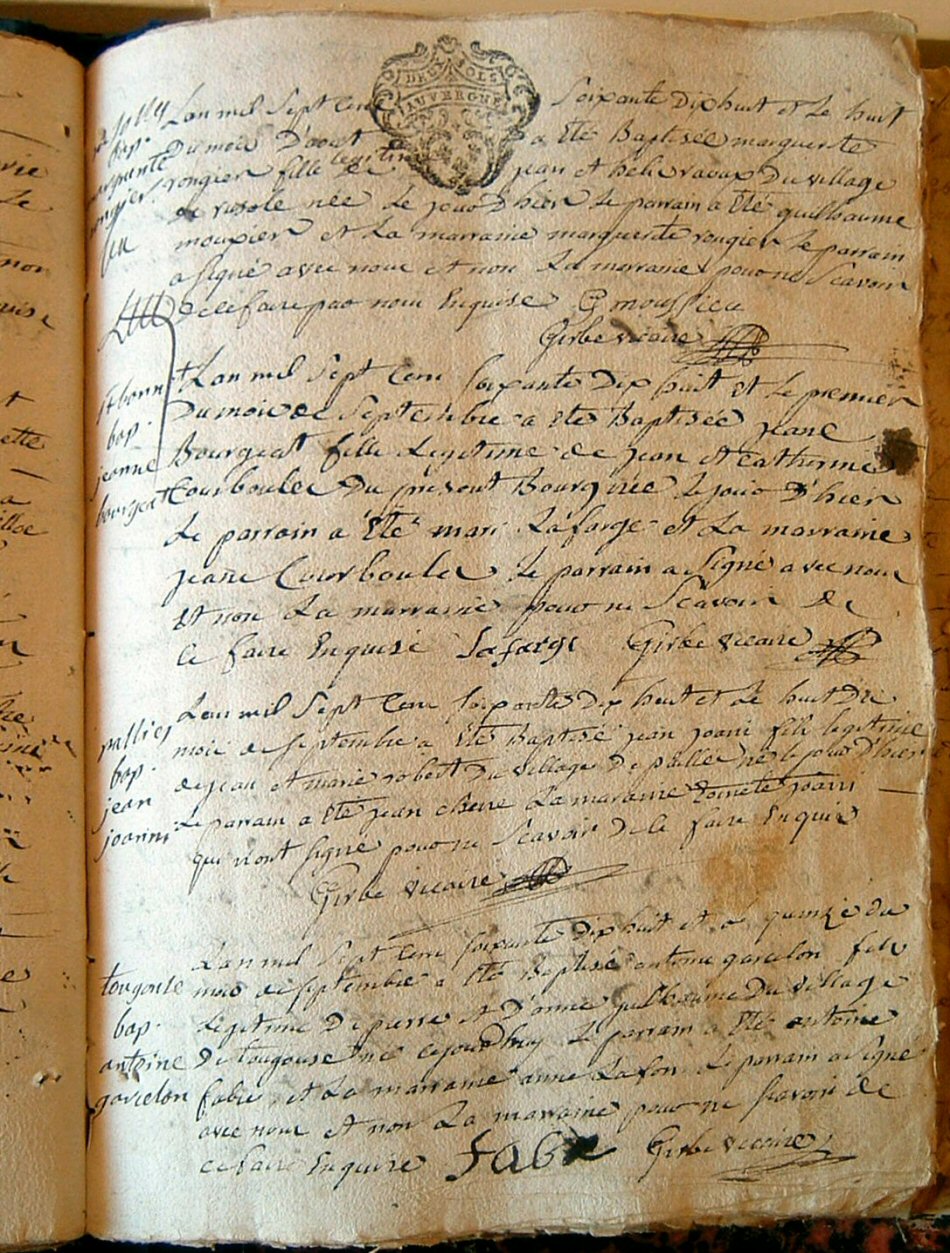 DEUX SOLS
AUVERGNE
Lan mil Sept Cent Soixante Dix huit et Le huit
bap.
Du mois D'aout a Eté Baptisée marguerite
rongier fille legitime de jean et helie raoux Du village
de née Le jour D'hier Le parrain a Eté guilhaume
moussier et La marraine marguerite rougier Le parrain
a signé avec nous et non La marraine pour ne Scavoir
de le faire par nous Enquise G moussieu
Girbe vicaire
st bonnet
bap.
jeanne
bourgeat
Lan mil Sept Cent Soixante Dix huit et Le premier
Du mois de Septembre a Eté Baptisée jeane
Bourgeat fille Legitime de jean et Catherine
Courboulex Du present Bourg née Le jour D'hier
Le parrain a Eté Lafarge et La marraine
jeane Courboulex Le parrain a Signé avec nous
et non La marraine pour ne Scavoir de
le faire Enquise Lafarge Girbe vicaire
pallies
bap.
jean
joanni
Lan mil Sept Cent Soixante Dix huit et Le huit Du
mois de Septembre a Eté Baptisé jean joani fils legitime
de jean et marie robert Du village De né le jour D'hier
Le parrain a Eté jean La maraine toinete joani
qui n'ont signé pour ne Scavoir De le faire Enquis
Girbe vicaire
tougouse
bap.
antoine
garcelon
Lan mil Sept Cent Soixante Dix huit et Le quinze du
mois de Septembre a Eté Baptisé antoine garcelon fils
Legitime De pierre et D'anne guilhaume Du village
De tougouse né cejourdhuy Le parrain a Eté antoine
fabre et La marraine anne Lafon Le parrain a Signé
avec nous et non La marraine pour ne scavoir de
ce faire Enquise FABRE Girbe vicaire